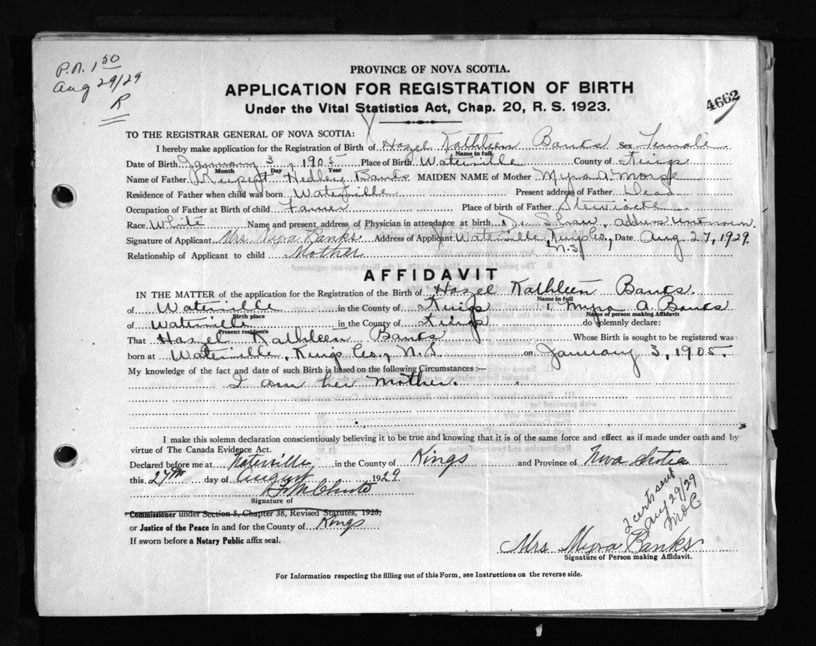 P.N. 1 50
Aug 29/29
R
4662
PROVINCE OF NOVA SCOTIA.
APPLICATION FOR REGISTRATION OF BIRTH
Under the Vital Statistics Act, Chap. 20, R. S. 1923.
TO THE REGISTRAR GENERAL OF NOVA SCOTIA:
I hereby make application for the Registration of Birth of Hazel Kathleen Banks Sex Female
Name in full
Date of Birth January 3, 1905 Place of Birth Waterville County of Kings
Month Day Year
Name of Father Rupert Hedley Banks MAIDEN NAME of Mother Myra A. Morse
Residence of Father when child was born Waterville Present address of Father Dead
Occupation of Father at Birth of child Farmer Place of birth of Father
Race White Name and present address of Physician in attendance at birth Dr. Shaw, address unknown.
Signature of Applicant Mrs. Myra Banks. Address of Applicant Waterville, Kings Co., N.S. Date Aug 27, 1929.
Relationship of Applicant to child Mother
AFFIDAVIT
IN THE MATTER of the application for the Registration of the Birth of Hazel Kathleen Banks.
Name in full
of Waterville in the County of Kings i, Myra A. Banks
Birth place Name of person making Affidavit
of Waterville in the County of Kings do solemnly declare:
Present residence
That Hazel Kathleen Banks Whose Birth is sought to be registered was
born at Waterville, Kings Co., N.S. on January 3, 1905.
My knowledge of the fact and date of such Birth is based on the following Circumstances:—
I am her mother.
I make this solemn declaration conscientiously believing it to be true and knowing that it is of the same force and effect as if made under oath and by
virtue of The Canada Evidence Act.
Declared before me at Waterville, in the County of Kings and Province of Nova Scotia
this 27th day of August 1929
Signature of
Commissioner under Section 8, Chapter 38, Revised Statutes, 1923,
or Justice of the Peace in and for the County of Kings
If sworn before a Notary Public affix seal.
2 certs sent
Aug 29/29
Mrs. Myra Banks
Signature of Person making Affidavit.
For Information respecting the filling out of this Form, see Instructions on the reverse side.